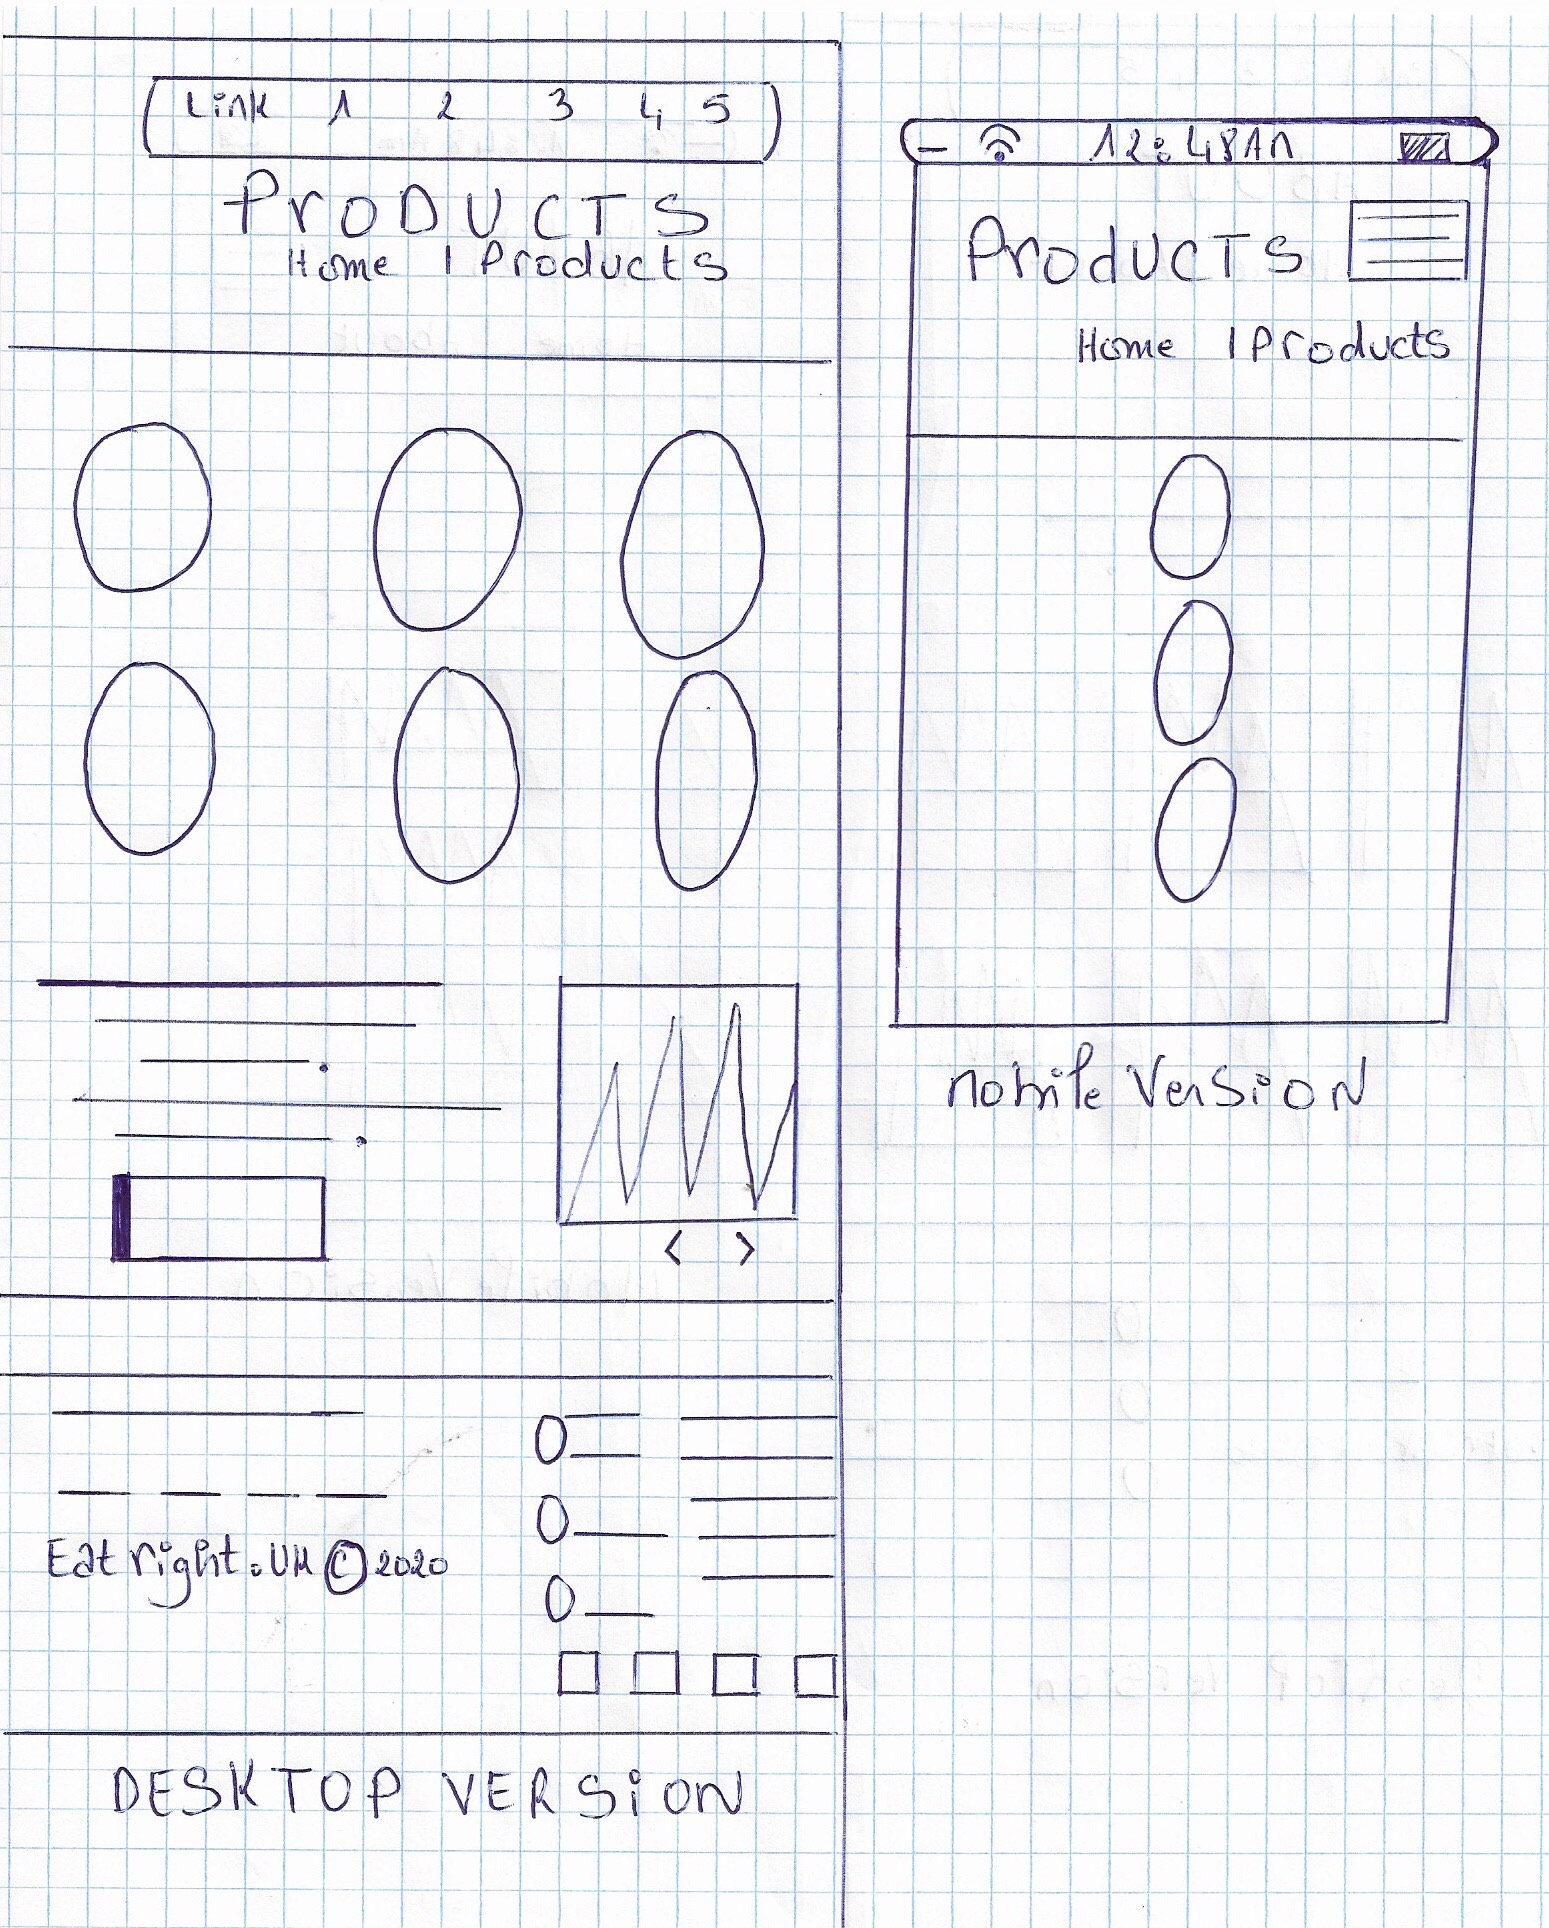 Link 1 2 3 4 5
PRODUCTS
Home | Products
Eat right.UK © 2020
DESKTOP VERSION
12:48AM
Products
Home | Products
mobile Version